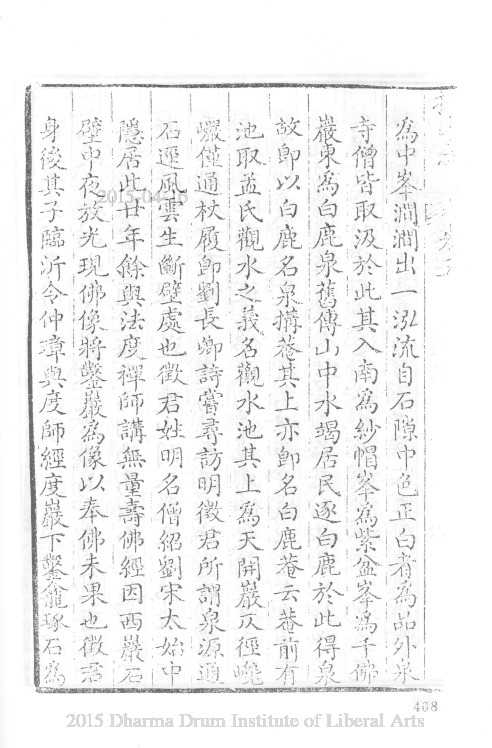 為中峯澗澗出一泓流自石隙中色正白者為品外泉
寺僧皆取汲於此其入南為紗帽峯為紫盆峯為千佛
巖東為白鹿泉舊傳山中水竭居民逐白鹿於此得泉
故即以白鹿名泉搆菴其上亦即名白鹿菴云菴前有
池取孟氏觀水之義名觀水池其上為天開巖仄徑巉
巗僅通杖履即劉長卿詩嘗尋訪明徵君所謂泉源通
石逕風雲生斷壁處也徵君姓明名僧紹劉宋太始中
隱居此廿年餘與法度禪師講無量壽佛經因西巖石
壁中夜放光現佛像將鑿巖為像以奉佛未果也徵君
身後其子臨沂令仲璋與度師經度巖下鑿龕琢石為
408
2015-04-15
2015 Dharma Drum Institute of Liberal Arts